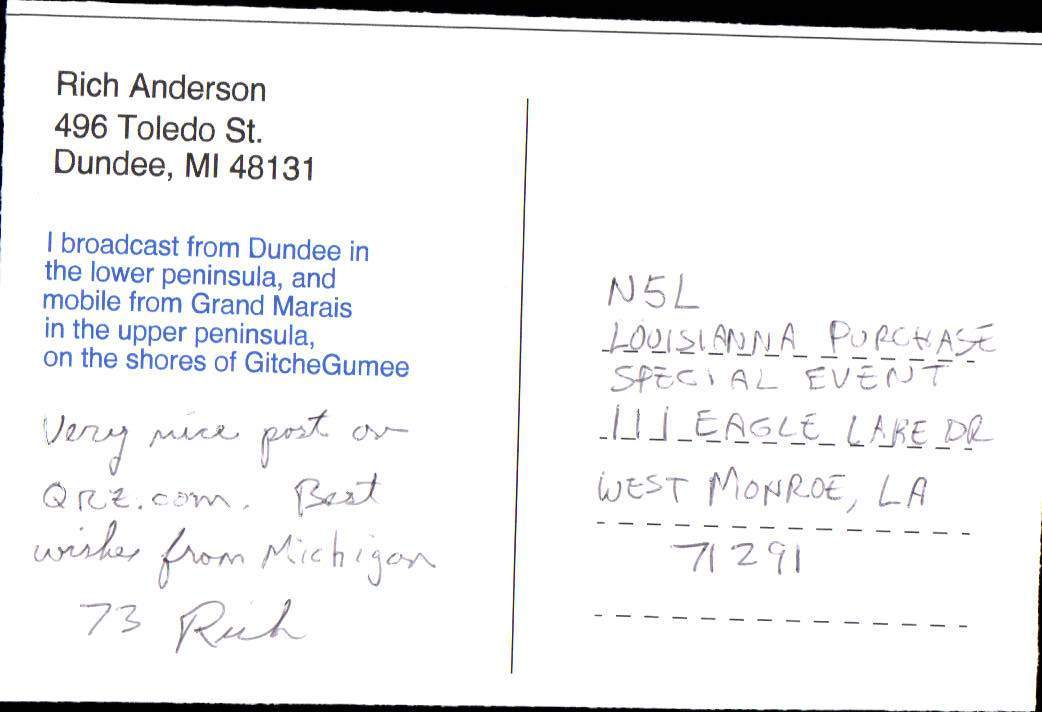 Rich Anderson
496 Toledo St.
Dundee, MI 48131
I broadcast from Dundee in
the lower peninsula, and
mobile from Grand Marais
in the upper peninsula,
on the shores of GitcheGumee
Very nice post on
QRZ.com. Best
wishes from Michigan
73 Rich
N5L
LOUISIANNA PURCHASE
SPECIAL EVENT
111 EAGLE LAKE DR
WEST MONROE, LA
71291